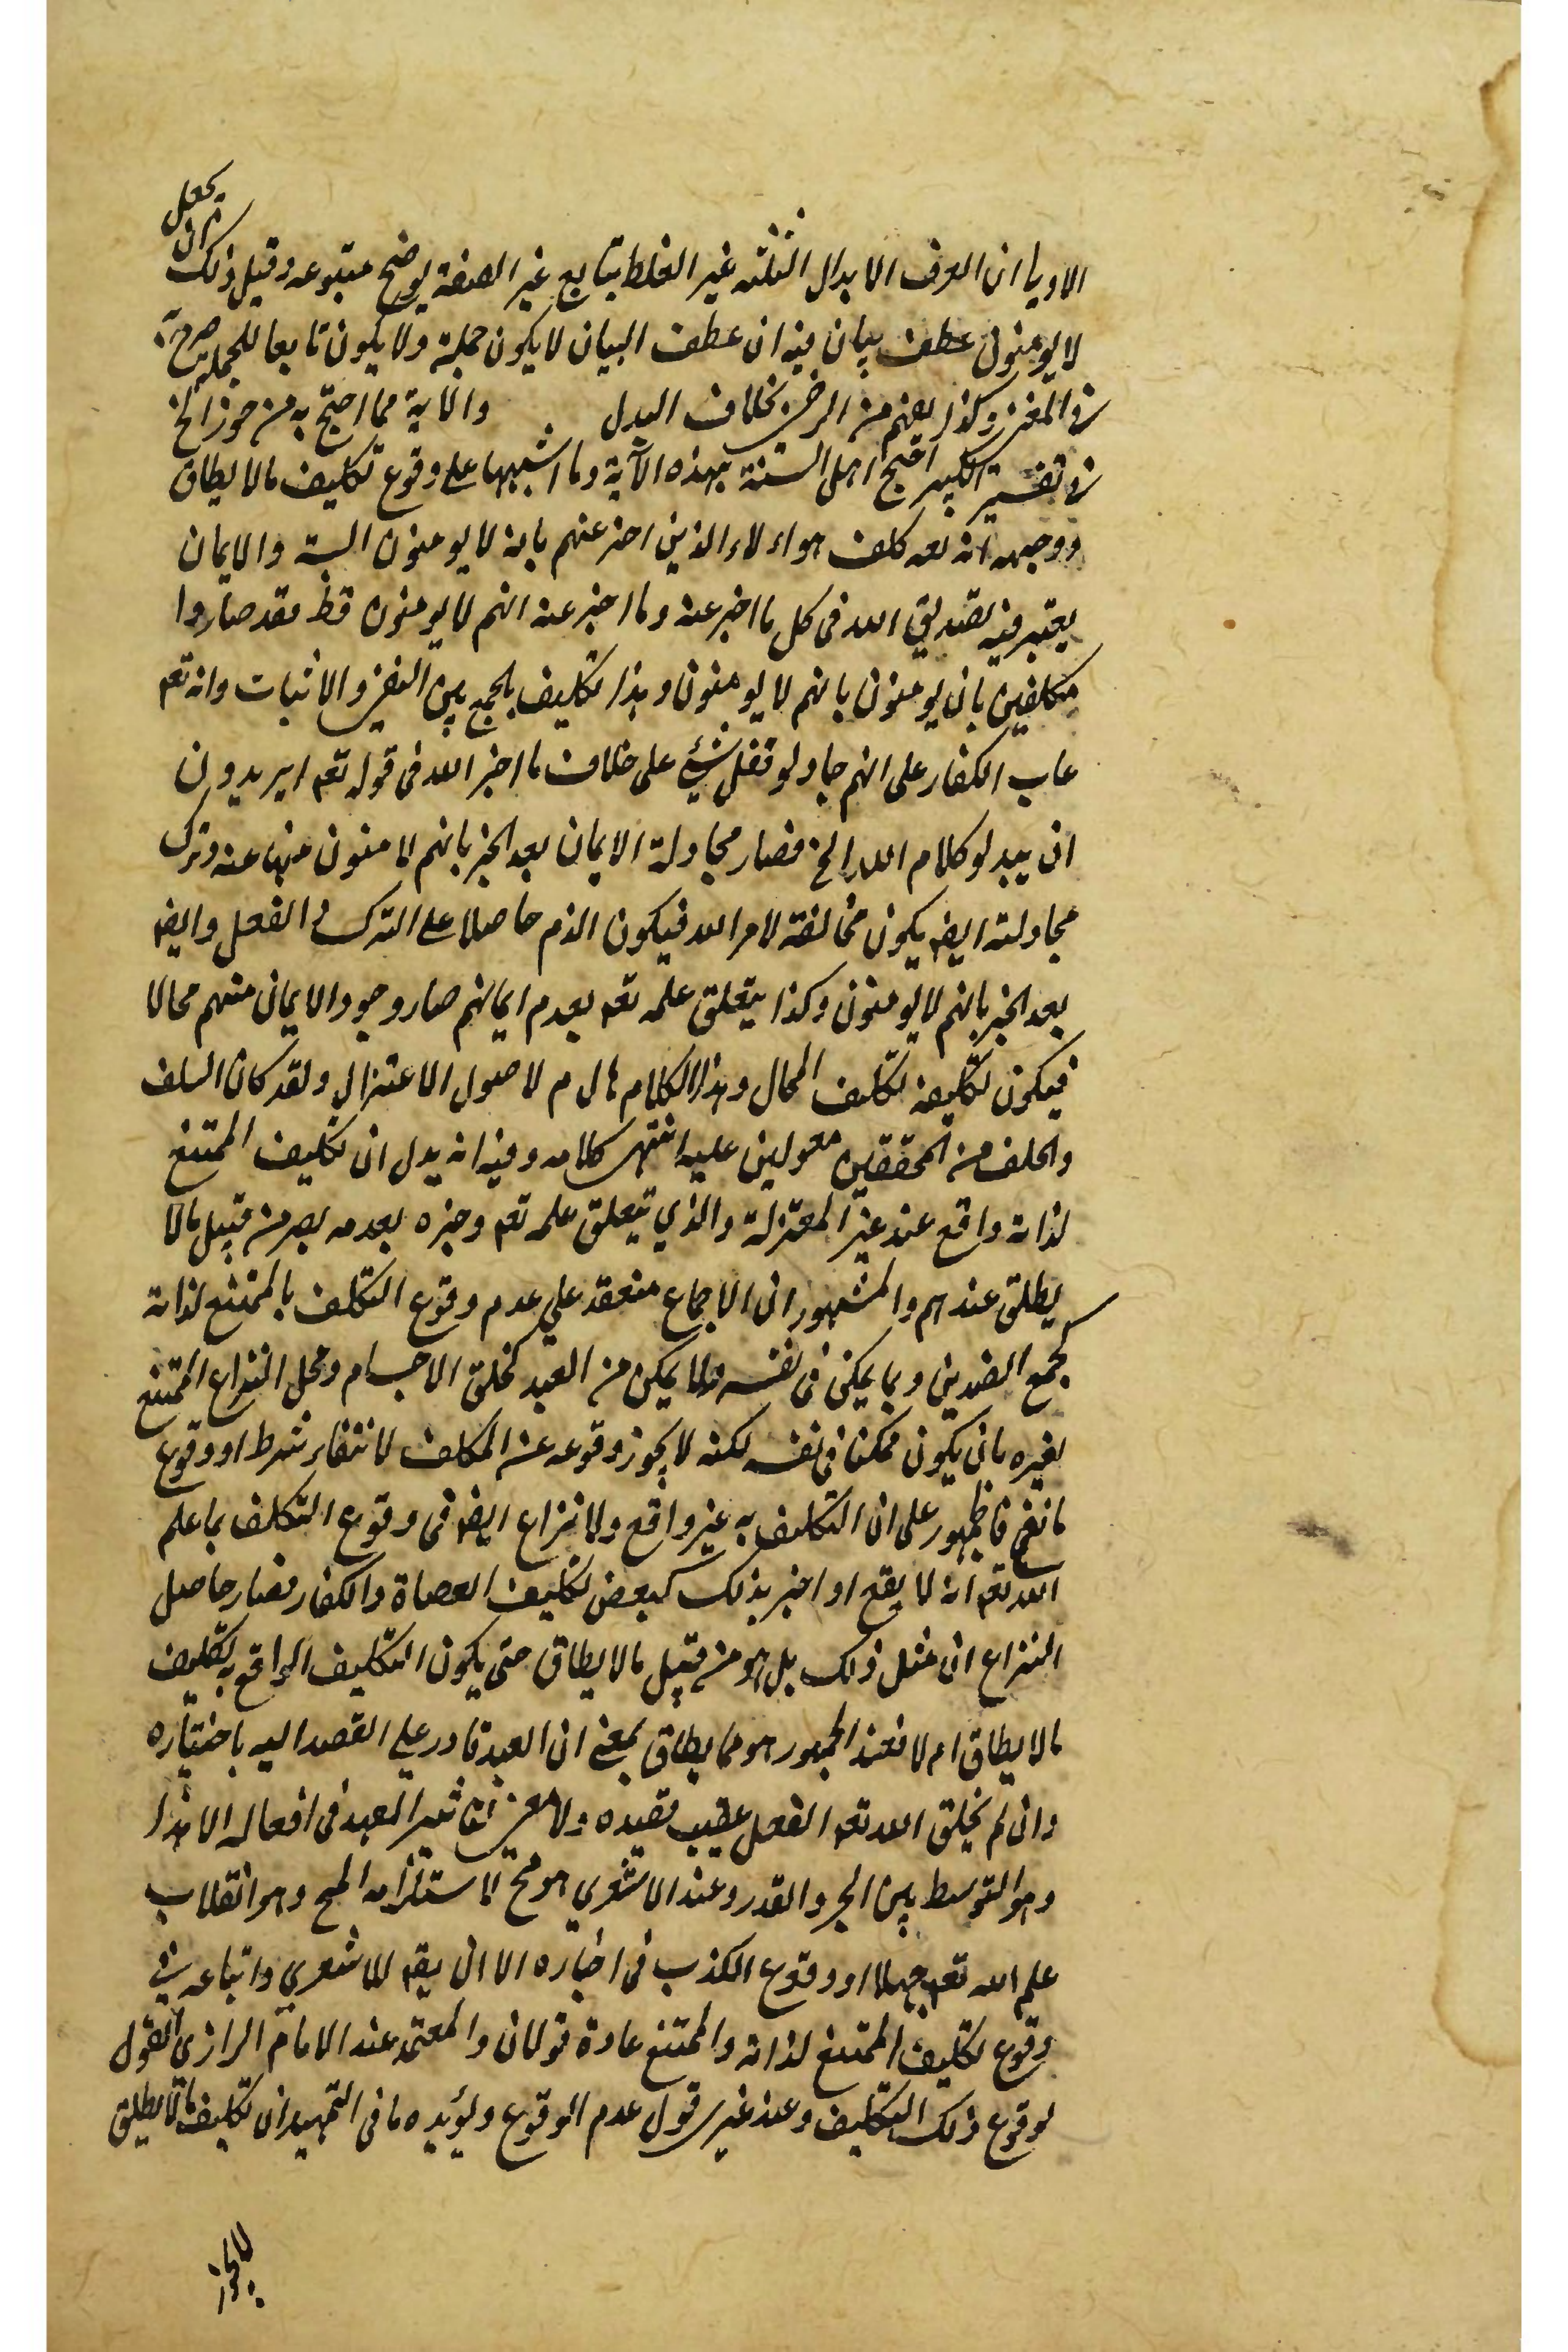 يجعل
الاول ان المعرف الابدال الثلثه غير الغلط بتابع غير الصفة يوضح متبوعه وقيل ذلك
لا يومنون عطف بيان فيه ان عطف البيان لا يكون جملة ولا يكون تابعا للجملة صرح به
في المغنى وكذا يفهم من الرضي بخلاف البدل والآية مما احتج به من جوز الخ
في تفسير الكبير احتج اهل السنة بهذه الآية وما اشبهها على وقوع تكليف ما لا يطاق
ووجهه انه تعه كلف هواء لاء الذين اخبر عنهم بانه لا يومنون البتة والايمان
يعتبر فيه تصديق الله في كل ما اخبر عنه وما اخبر عنه انهم لا يومنون قط فقد صاروا
مكلفين بان يومنون بانهم لا يومنون وهذا تكليف بالجمع بين النفي والاثبات وانه تعه
عاب الكفار على انهم حاولو فعل شيئ على خلاف ما اخبر الله في قوله تعه ايريدون
ان يبدلو كلام الله الخ فصار محاولة الايمان بعد الخبر بانهم لا منون منها عنه وترك
محاولته ايضه يكون مخالفة لامر الله فيكون الذم حاصلا على الترك والفعل وايضه
بعد الخبر بانهم لا يومنون وكذا يتعلق علمه تعه بعدم ايمانهم صار وجود الايمان منهم محالا
فيكون تكليفه تكليف المحال وهذا الكلام هادم لاصول الاعتزال ولقد كان السلف
والخلف من المحققين معولين عليه انتهى كلامه وفيه انه يدل ان تكليف الممتنع
لذاته واقع عند غير المعتزلة والذي تيعلق علمه تعه وخبره بعدمه يصر من قبيل مالا
يطلق عندهم والمشهور ان الاجماع منعقد علي عدم وقوع التكلف بالممتنع لذاته
كجمع الضدين وبما يمكن في نفسه ولا يمكن من العبد كخلق الاجسام ومحل النزاع الممتنع
لغيره بان يكون ممكنا في نفسه لكنه لا يجوز وقوعه عن المكلف لانتفاء شرط او وقوع
مانع فالجمهور على ان التكليف به غير واقع ولا نزاع ايضه في وقوع التكلف بما علم
الله تعه انه لا يقع او اخبر بذلك كبعض تكليف العصاة والكفار فصار حاصل
النزاع ان مثل ذلك بل هو من قبيل مالا يطاق حتى يكون التكليف الواقع به تكليف
مالا يطاق ام لا فعند الجمهور هو مما يطاق بمعنى ان العبد قادر علي القصد اليه باختياره
وان لم يخلق الله تعه الفعل عقيب قصده ولا معنى لتاثير العبد في افعاله الا هذا
وهو التوسط بين الجبر والقدر وعند الاشعري هو مح لاستلزامه المح وهو انقلاب
علم الله تعه جهلا او وقوع الكذب في اخباره الا ان يقه للاشعري واتباعه في
وقوع تكليف الممتنع لذاته والممتنع عادة قولان والمعتمد عند الامام الرازي القول
لوقوع ذلك التكليف وعند غيره قول عدم الوقوع ويؤيده ما في التمهيد ان تكليف مالا يطلق
لا يجوز